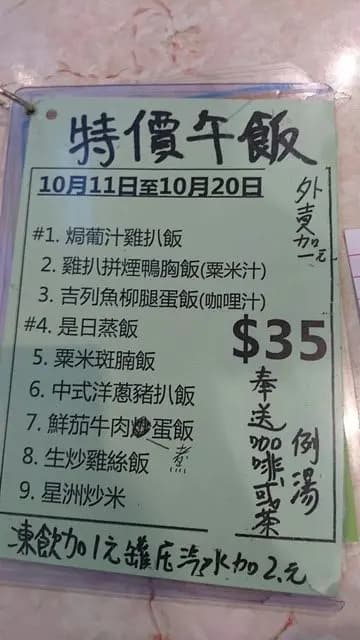 特價午飯
10月11日至10月20日
外賣加一元
#1. 焗葡汁雞扒飯
2. 雞扒拼煙鴨胸飯(粟米汁)
3. 吉列魚柳腿蛋飯(咖哩汁)
#4. 是日蒸飯
5. 粟米斑腩飯
6. 中式洋蔥豬扒飯
7. 鮮茄牛肉炒蛋飯
煮
8. 生炒雞絲飯
9. 星洲炒米
$35
奉送咖啡或茶
例湯
凍飲加1元罐庄汽水加2元